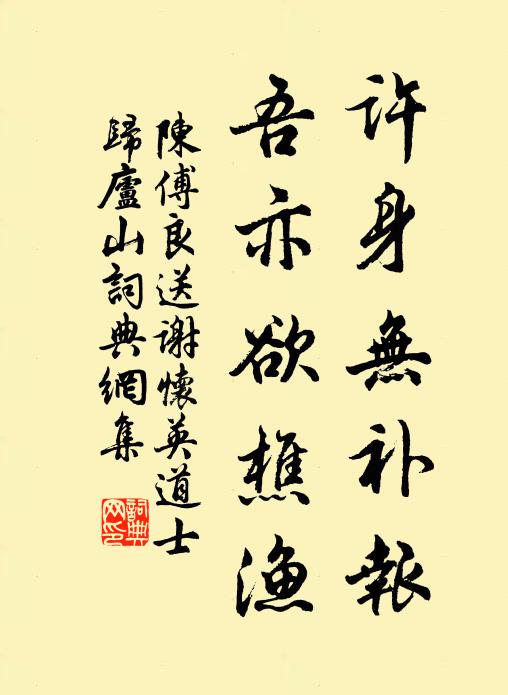 許身無补報
吾亦欲樵漁
陳傅良送謝懷英道士
歸廬山詞典網集
詞典网印